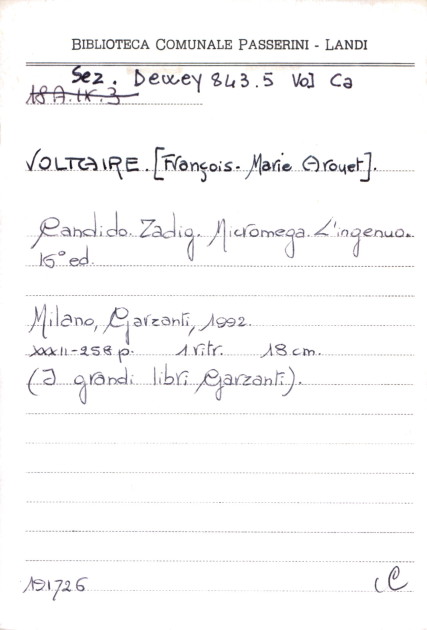 BIBLIOTECA COMUNALE PASSERINI - LANDI
Sez. Dewey 843.5 Vol Ca
18 A.IX.3
VOLTAIRE. [François-Marie Arouet].
Candido. Zadig. Micromega. L'ingenuo.
16° ed.
Milano, Garzanti, 1992.
XXXII-258 p. 1 ritr. 18 cm.
(I grandi libri Garzanti).
191726